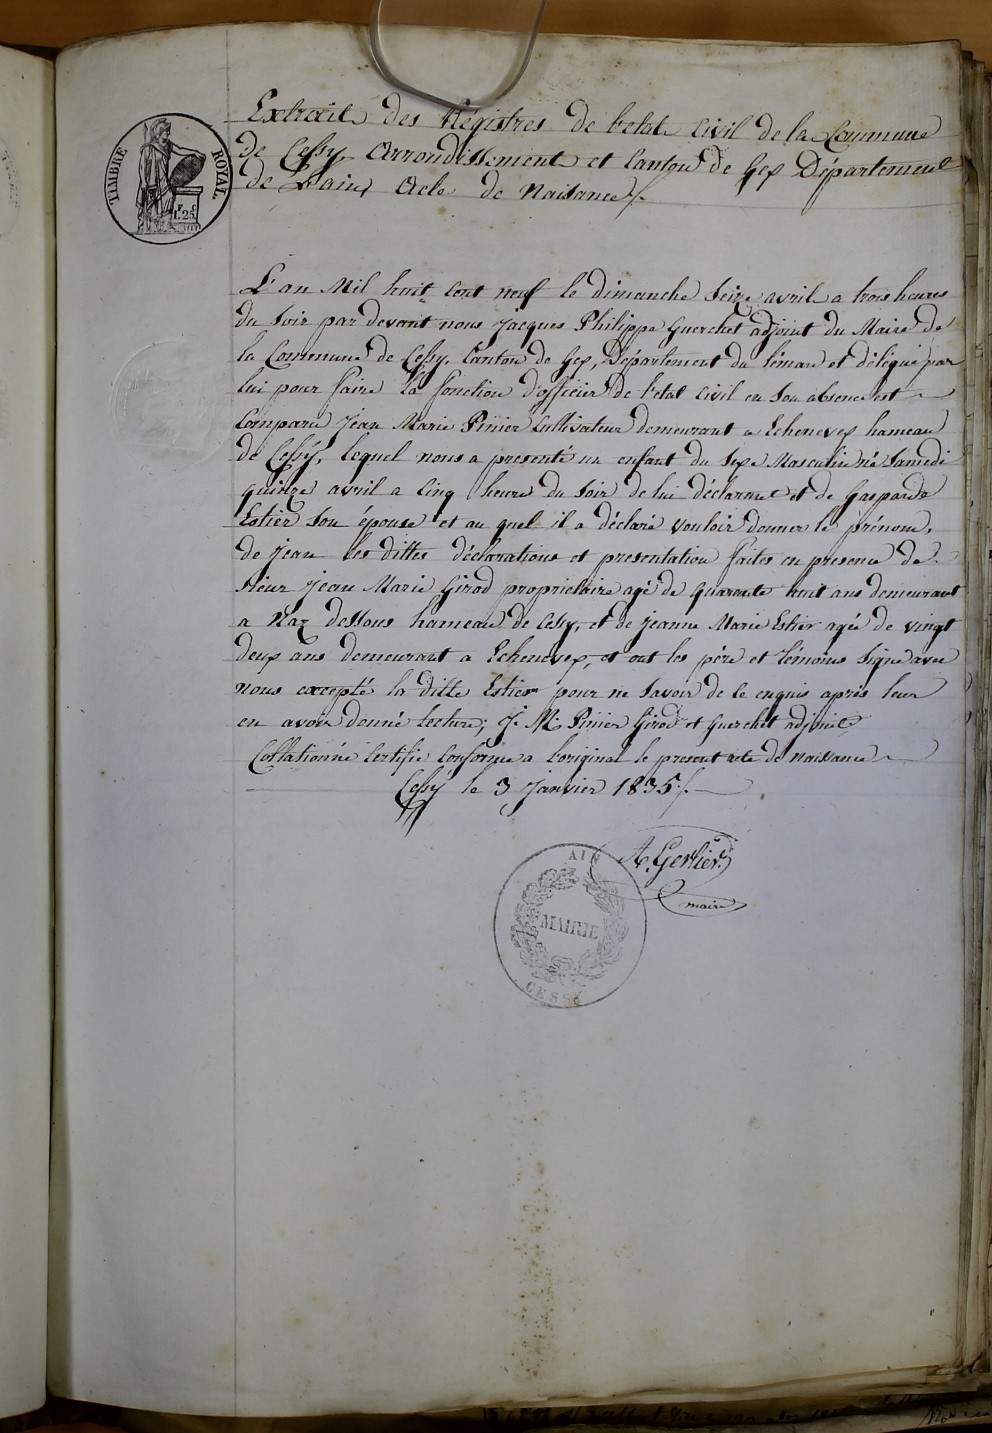 Extrait des Régistres de l'etat Civil de la Commune
de Cessy Arrondissement et Canton de Gex Département
de L'ain, Acte de Naissance /.
TIMBRE ROYAL
L'an Mil huit Cent neuf le dimanche Seize avril a trois heures
du Soir par devant nous Jacques Philippe Guerchet adjoint du Maire de
la Commune de Cessy, Canton de Gex, Département du Léman et délégué par
lui pour faire la fonction d'officier de l'etat Civil en Son absence est
Comparu Jean Marie Pinier Cultivateur demeurant a Echenevex hameau
de Cessy, lequel nous a presenté un enfant du Sexe Masculin né Samedi
quinze avril a Cinq heure du Soir de lui déclarant et de Gasparde
Estier Son épouse et au quel il a déclaré vouloir donner le prénom,
de Jean les dittes déclarations et presentation faites en presence de
Sieur Jean Marie Girod proprietaire agé de quarante huit ans demeurant
a Naz dessous hameau de Cessy, et de Jeanne Marie Estier agée de vingt
deux ans demeurant a Echenevex, et ont les père et témoins Signé avec
nous excepté la ditte Estier pour ne Savoir de ce enquis après leur
en avoir donné lecture; J. M. Pinier Girod et Guerchet adjoint
Collationné Certifié Conforme a l'original le present acte de naissance
Cessy le 3 Janvier 1835 /.
A. Gerlier
maire
AIN
MAIRIE
CESSY